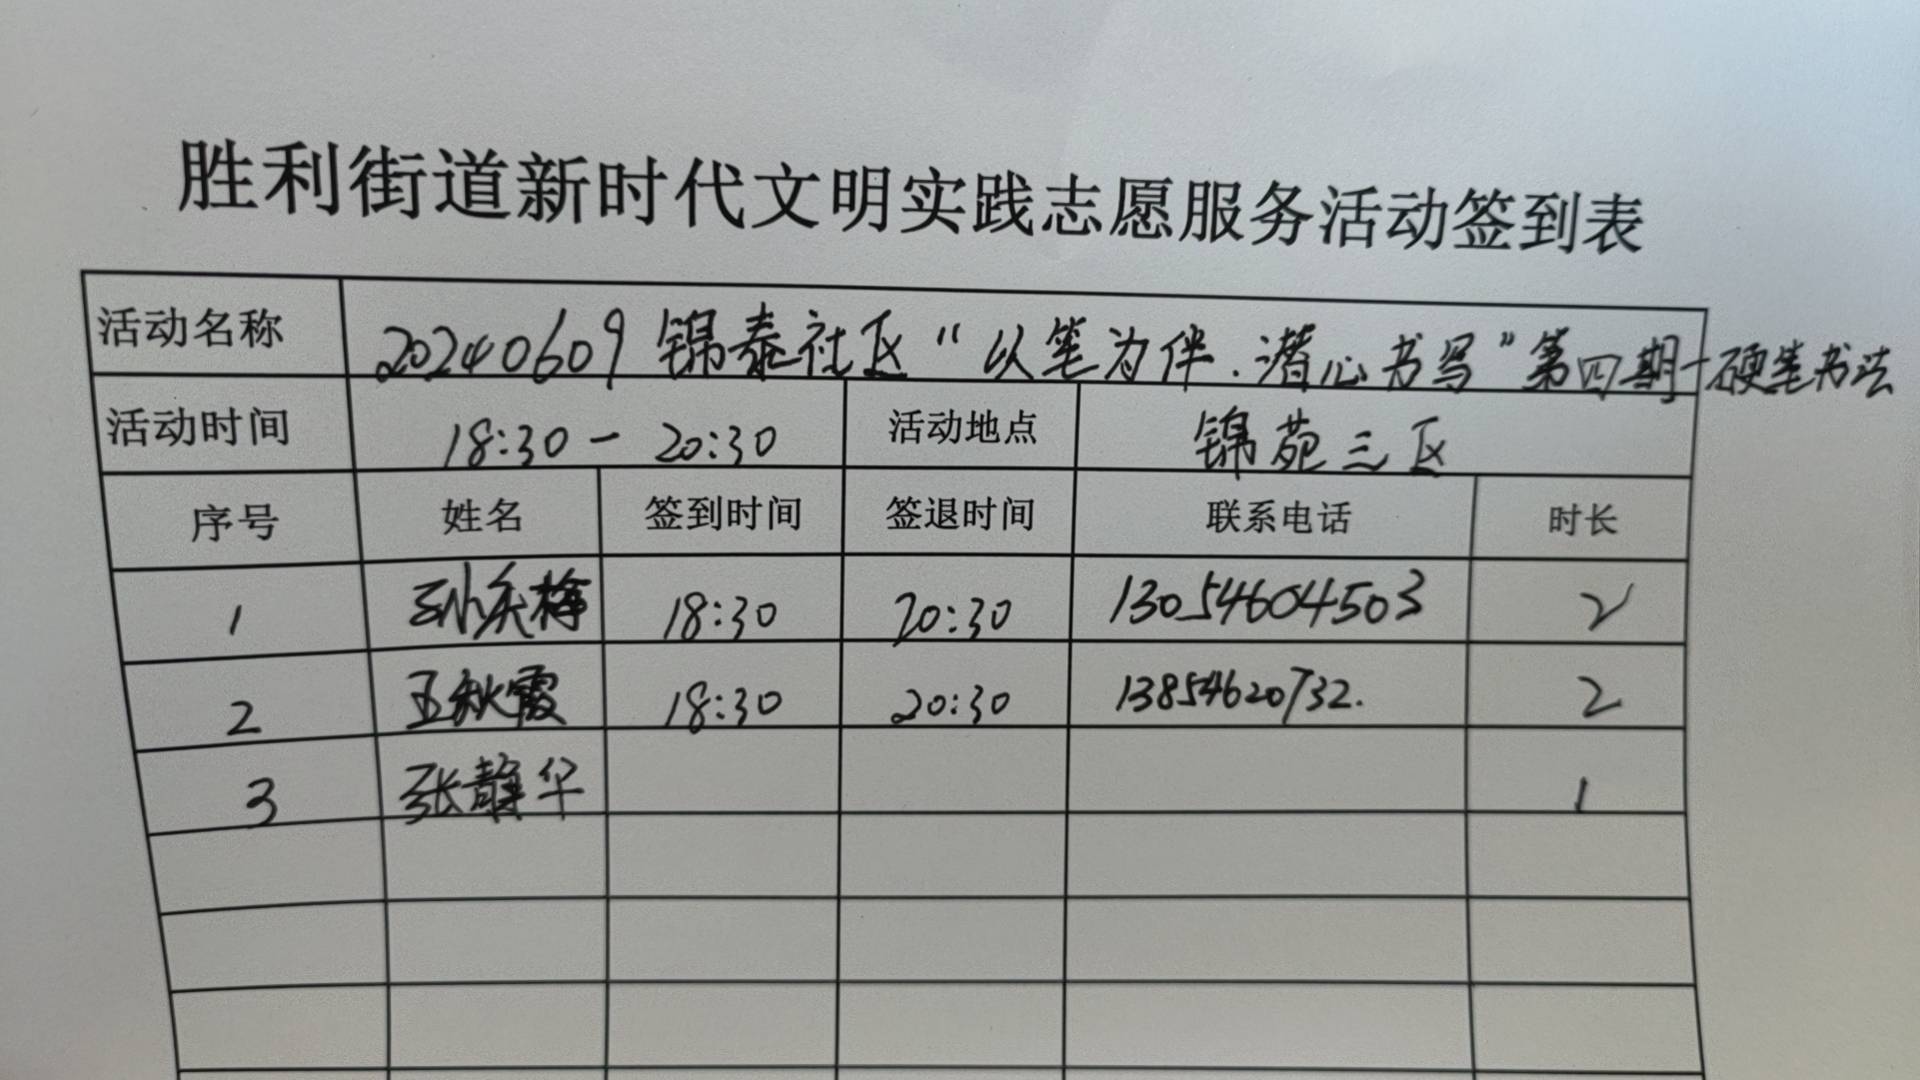 胜利街道新时代文明实践志愿服务活动签到表
活动名称 20240609 锦泰社区“以笔为伴.潜心书写”第四期-硬笔书法
活动时间 18:30-20:30 活动地点 锦苑三区
序号 姓名 签到时间 签退时间 联系电话 时长
1 18:30 20:30 13054604503 2
2 王秋霞 18:30 20:30 13854620732. 2
3 张静华 1